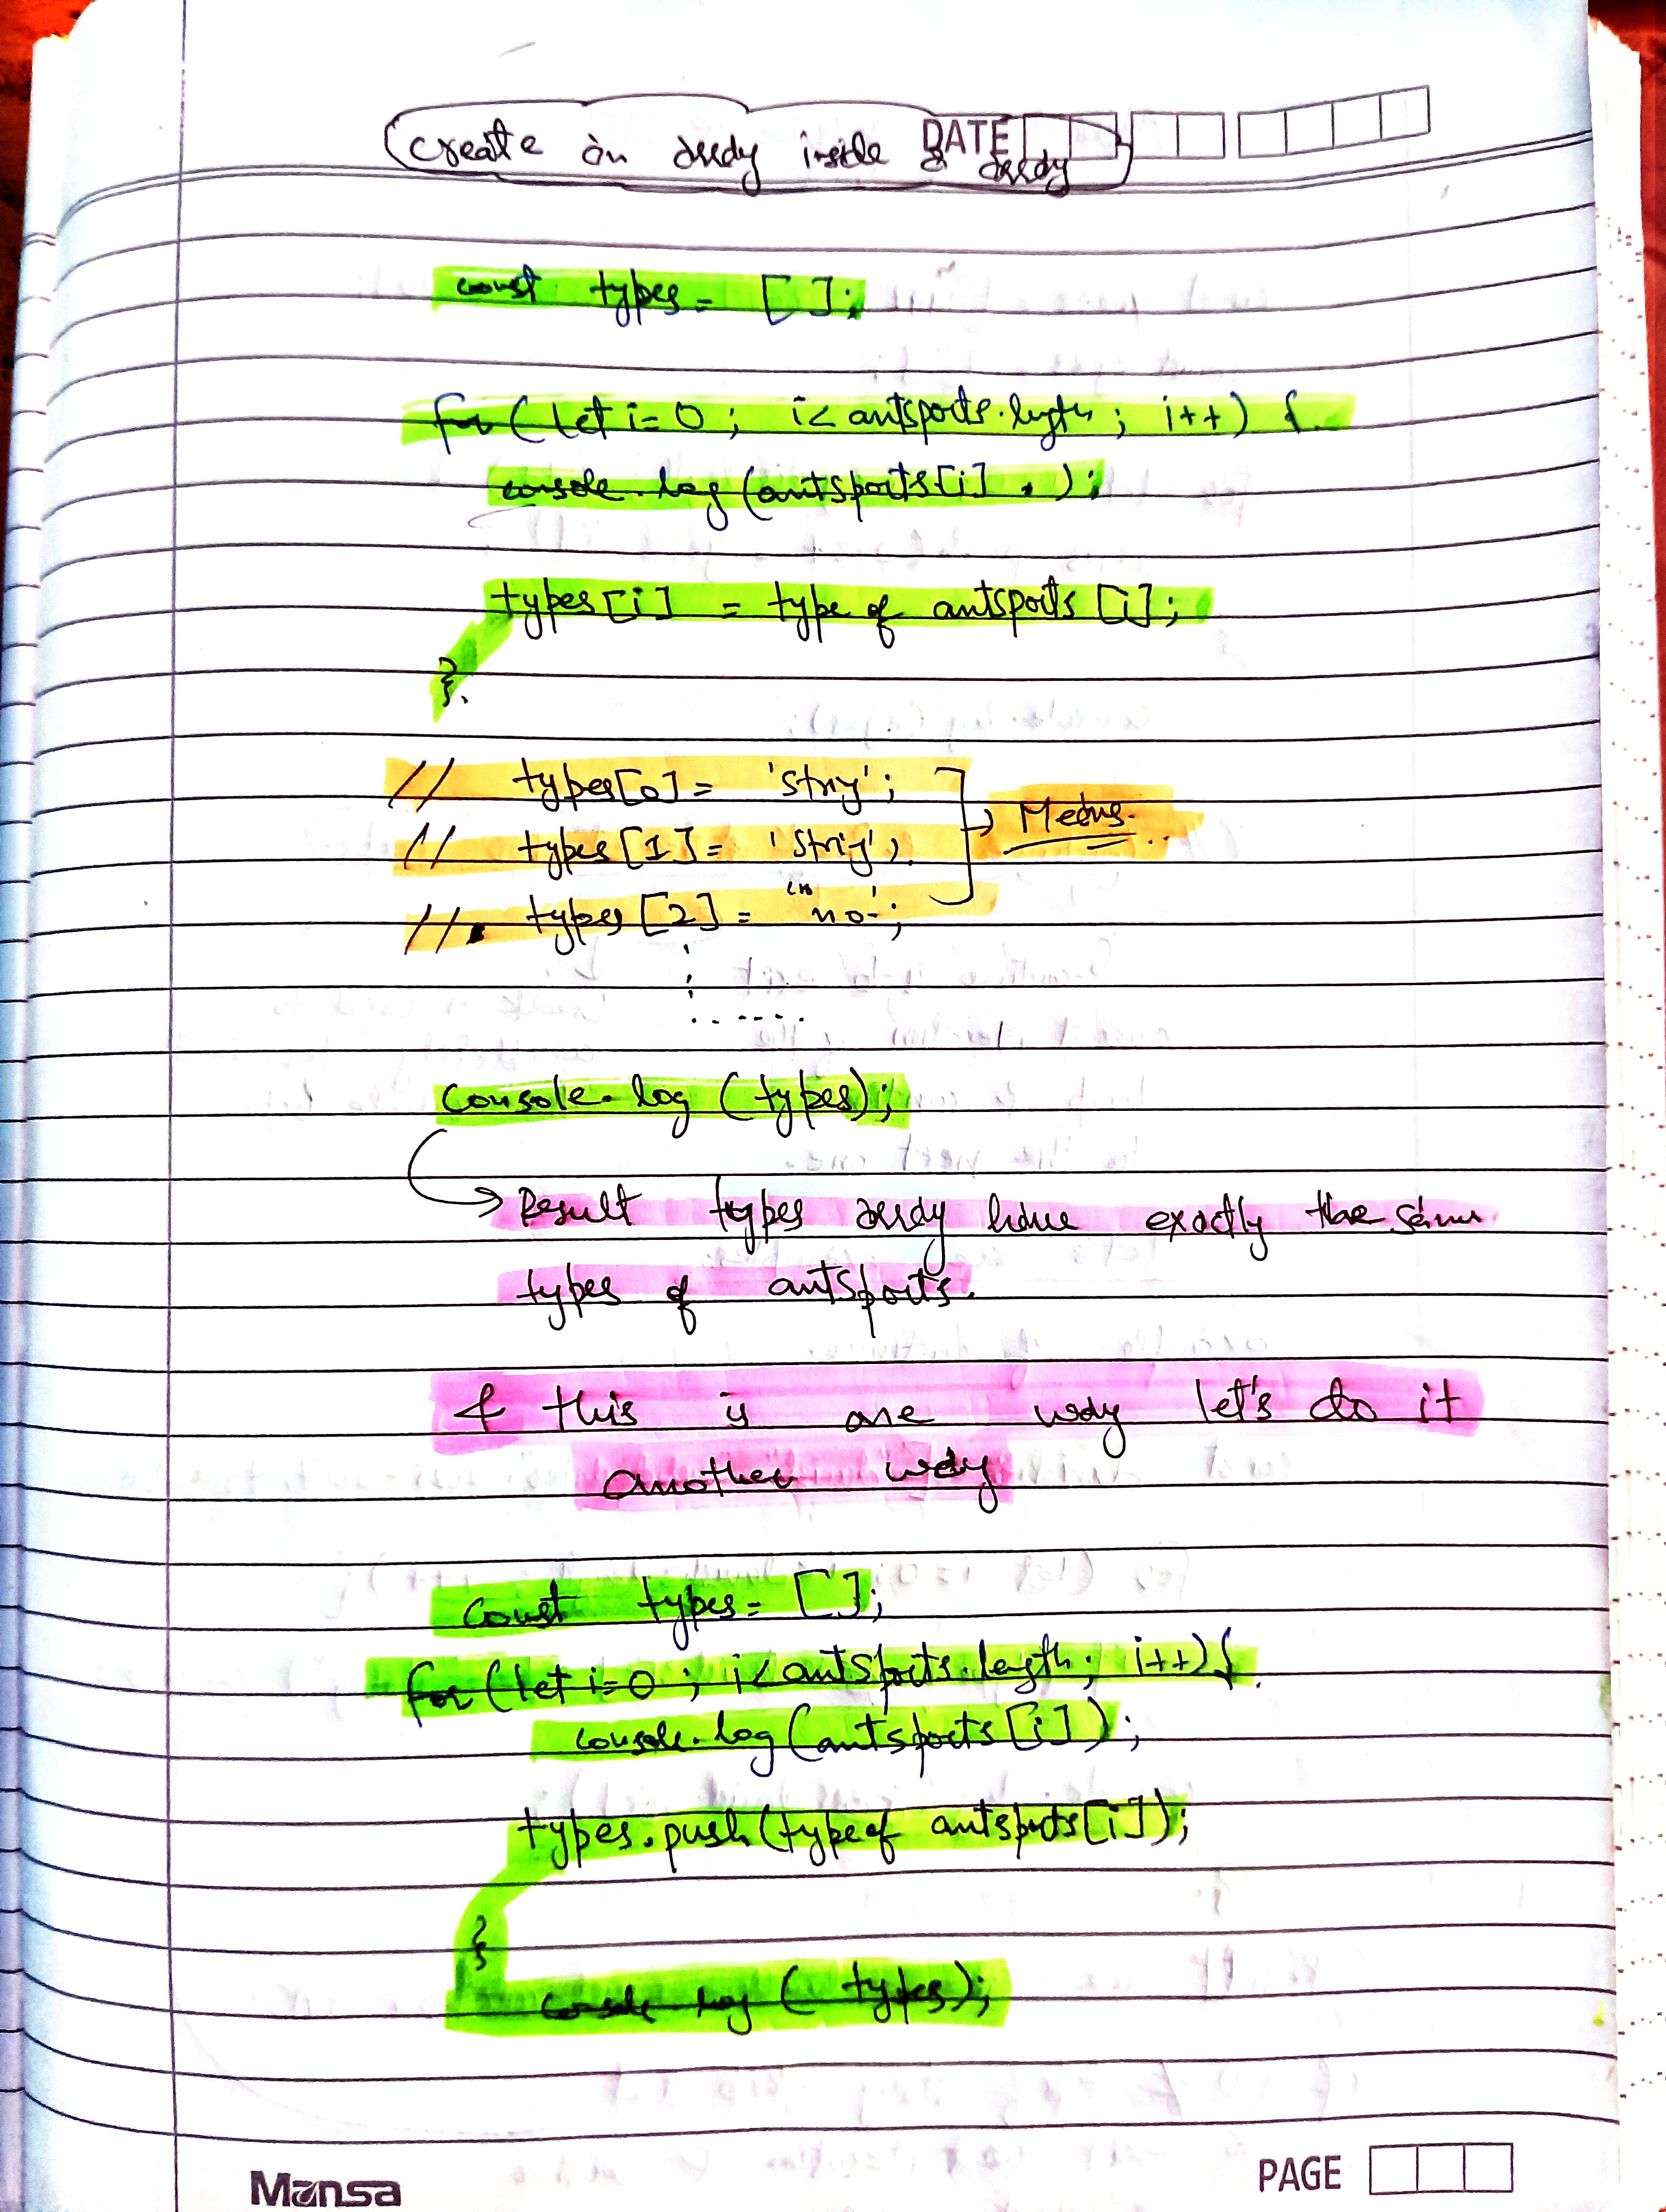 DATE
create an array inside a array
const types = [ ];
for ( let i = 0 ; i < antsports.length ; i++ ) {
console.log (antsports[i] , );
types[i] = type of antsports [i];
}.
// types[0] = 'String';
// types [1] = 'String';
→ Means.
// types [2] = no.;
console.log ( types);
→ Result types array have exactly the same
types of antsports.
& this is one way let's do it
another way
const types = [ ];
for (let i=0 ; i< antsports.length; i++) {
console.log (antsports [i]);
types.push (typeof antsports[i]);
}
console.log ( types);
Mansa
PAGE